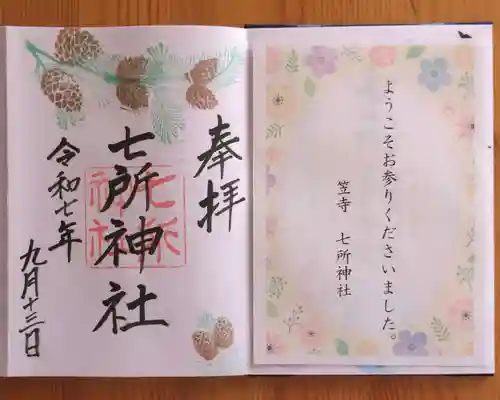 奉拝
七所神社
七所
神社
令和七年
九月十三日
ようこそお参りくださいました。
笠寺 七所神社